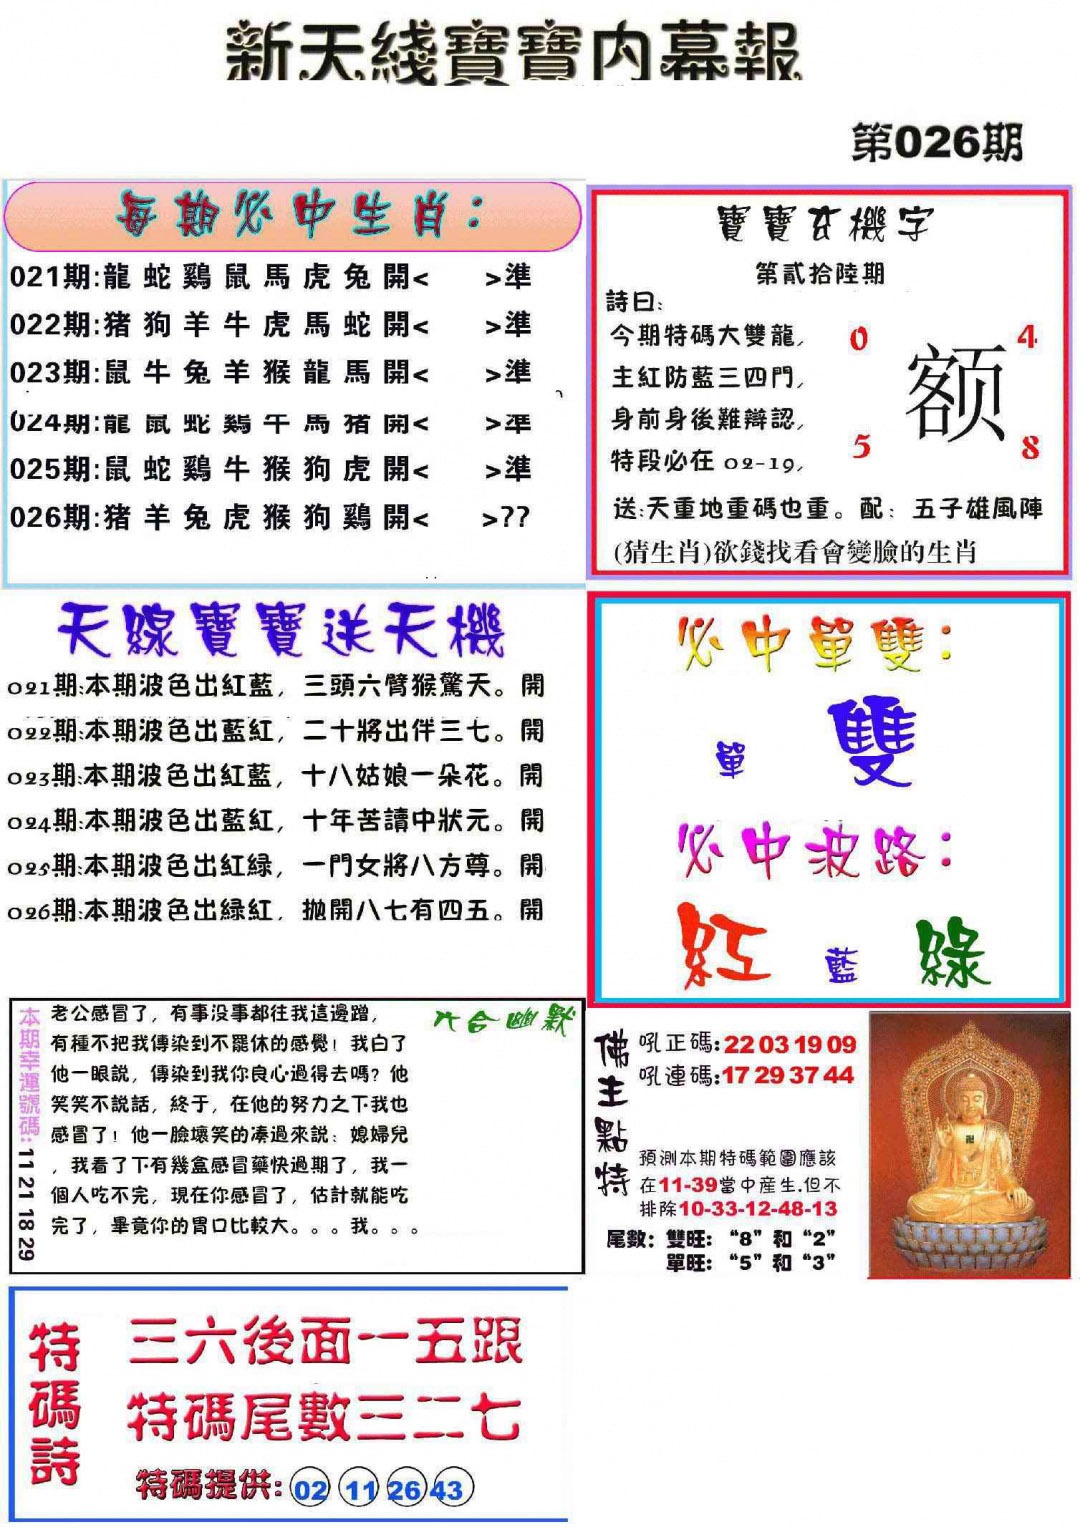 新天綫寶寶内幕報
第026期
每期必中生肖：
021期:龍蛇鷄鼠馬虎兔開< >準
022期:猪狗羊牛虎馬蛇開< >準
023期:鼠牛兔羊猴龍馬開< >準
024期:龍鼠蛇鷄牛馬猪開< >準
025期:鼠蛇鷄牛猴狗虎開< >準
026期:猪羊兔虎猴狗鷄開< >??
寶寶玄機字
第貳拾陸期
詩曰:
今期特碼大雙龍,
主紅防藍三四門,
身前身後難辯認,
特段必在 02-19,
0 4
额
5 8
送:天重地重碼也重。配：五子雄風陣
(猜生肖)欲錢找看會變臉的生肖
天線寶寶送天機
021期:本期波色出紅藍，三頭六臂猴驚天。開
022期:本期波色出藍紅，二十將出伴三七。開
023期:本期波色出紅藍，十八姑娘一朵花。開
024期:本期波色出藍紅，十年苦讀中狀元。開
025期:本期波色出紅緑，一門女將八方尊。開
026期:本期波色出緑紅，抛開八七有四五。開
必中單雙：
單 雙
必中波路：
紅 藍 綠
本期幸運號碼:11 21 18 29
六合幽默
老公感冒了，有事没事都往我這邊蹭，
有種不把我傳染到不罷休的感覺！我白了
他一眼説，傳染到我你良心過得去嗎？他
笑笑不説話，終于，在他的努力之下我也
感冒了！他一臉壞笑的凑過來説：媳婦兒
，我看了下有幾盒感冒藥快過期了，我一
個人吃不完，現在你感冒了，估計就能吃
完了，畢竟你的胃口比較大。。。我。。。
佛主點特
吼正碼:22 03 19 09
吼連碼:17 29 37 44
預測本期特碼範圍應該
在11-39當中産生.但不
排除10-33-12-48-13
尾數：雙旺：“8”和“2”
單旺：“5”和“3”
特碼詩
三六後面一五跟
特碼尾數三二七
特碼提供: 02 11 26 43